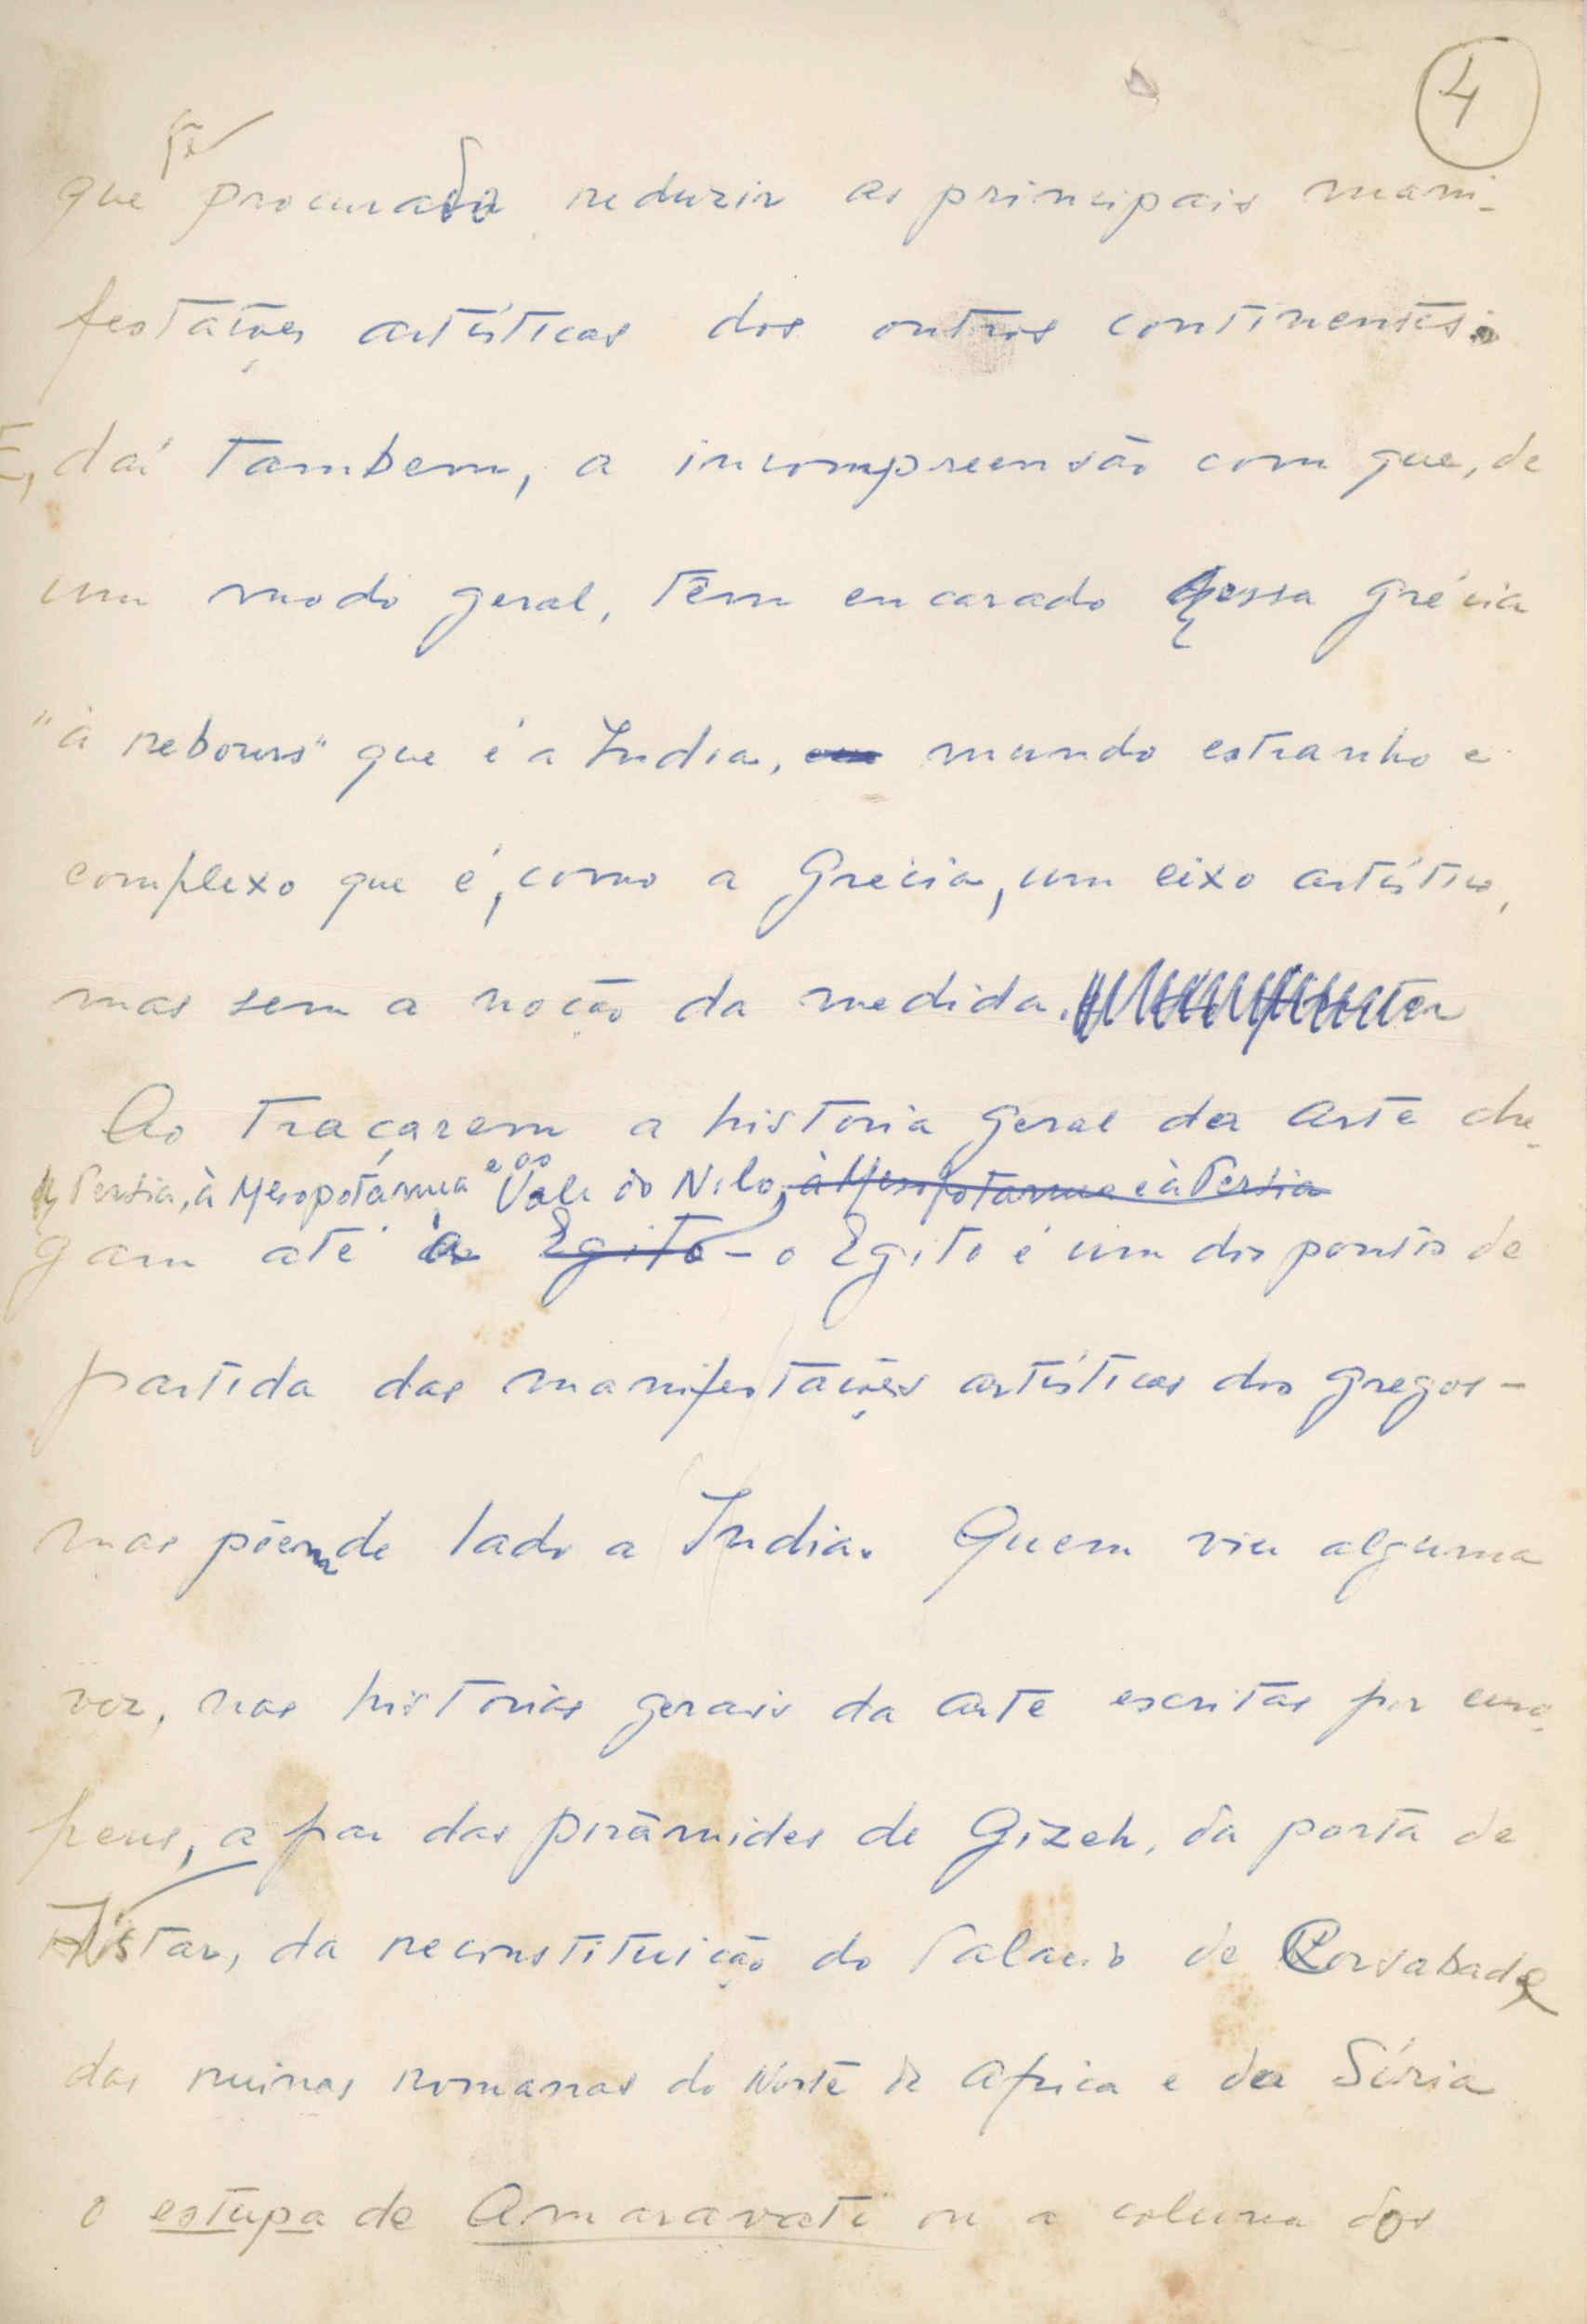 4
que têm procurado reduzir as principais mani-
festações artísticas dos outros continentes.
E, daí tambem, a incompreensão com que, de
um modo geral, têm encarado essa Grécia
"à rebours" que é a India, mundo estranho e
complexo que é, como a Grécia, um eixo artístico,
mas sem a noção da medida.
Ao traçarem a historia geral da arte che-
Persia, à Mesopotâmia e ao Vale do Nilo, à Mesopotamia e à Persia
gam até à Egito - o Egito é um dos pontos de
partida das manifestações artísticas dos gregos -
mas põem de lado a India. Quem viu alguma
vez, nas historias gerais da arte escritas por euro-
peus, a par das pirâmides de Gizeh, da porta de
Istar, da reconstituição do Palacio de Corsabad
das ruinas romanas do Norte de Africa e da Síria
o estupa de Amaravati ou a coluna dos